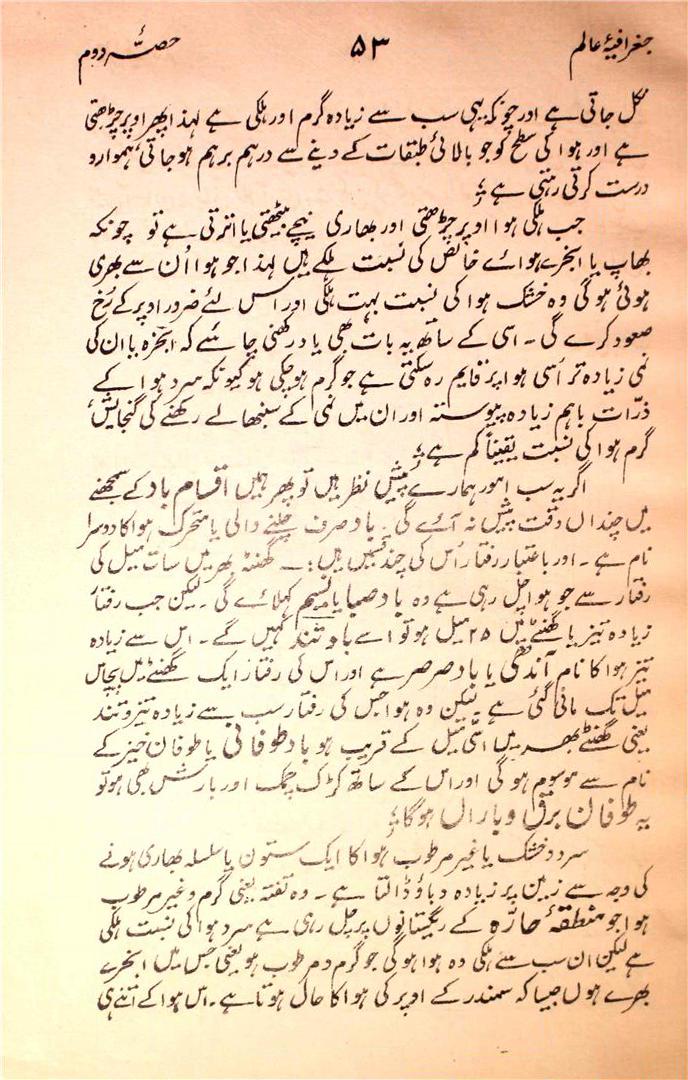 جغرافیۂ عالم ۵۳ حصۂ دوم
نکل جاتی ہے اور چونکہ یہی سب سے زیادہ گرم اور ہلکی ہے لہذا پھر اوپر چڑھتی
ہے اور ہوا کی سطح کو جو بالائی طبقات کے دینے سے درہم برہم ہو جاتی، ہموار و
درست کرتی رہتی ہے ؛
جب ہلکی ہوا اوپر چڑھتی اور بھاری نیچے بیٹھتی یا اترتی ہے تو چونکہ
بھاپ یا ابخرے ہوائے خالص کی نسبت ہلکے ہیں لہذا جو ہوا اُن سے بھری
ہوئی ہوگی وہ خشک ہوا کی نسبت بہت ہلکی اور اس لئے ضرور اوپر کے رُخ
صعود کرے گی ۔ اسی کے ساتھ یہ بات بھی یاد رکھنی چاہئے کہ ابخرہ یا ان کی
نمی زیادہ تر اُسی ہوا پر قایم رہ سکتی ہے جو گرم ہو چکی ہو کیونکہ سرد ہوا کے
ذرّات باہم زیادہ پیوستہ اور ان میں نمی کے سنبھالے رکھنے کی گنجایش،
گرم ہوا کی نسبت یقیناً کم ہے ؛
اگر یہ سب امور ہمارے پیش نظر ہیں تو پھر ہمیں اقسام باد کے سمجھنے
میں چنداں دقت پیش نہ آئے گی ۔ باد صرف چلنے والی یا متحرک ہوا کا دوسرا
نام ہے ۔ اور باعتبار رفتار اُس کی چند قسمیں ہیں :۔ گھنٹہ بھر میں سات میل کی
رفتار سے جو ہوا چل رہی ہے وہ باد صبا یا نسیم کہلائے گی ۔ لیکن جب رفتار
زیادہ تیز یا گھنٹے میں ۲۵ میل ہو تو اسے باد تند کہیں گے ۔ اس سے زیادہ
تیز ہوا کا نام آندھی یا باد صرصر ہے اور اس کی رفتار ایک گھنٹے میں پچاس
میل تک مانی گئی ہے ۔ لیکن وہ ہوا جس کی رفتار سب سے زیادہ تیز و تند
یعنی گھنٹے بھر میں اسّی میل کے قریب ہو باد طوفانی یا طوفان خیز کے
نام سے موسوم ہوگی اور اس کے ساتھ کڑک چمک اور بارش بھی ہو تو
یہ طوفان برق و باراں ہوگا ؛
سرد و خشک یا غیر مرطوب ہوا کا ایک ستون یا سلسلہ بھاری ہونے
کی وجہ سے زمین پر زیادہ دباؤ ڈالتا ہے ۔ وہ تفتہ یعنی گرم و غیر مرطوب
ہوا جو منطقۂ حارّہ کے ریگستانوں پر چل رہی ہے سرد ہوا کی نسبت ہلکی
ہے لیکن ان سب سے ہلکی وہ ہوا ہوگی جو گرم و مرطوب ہو یعنی جس میں ابخرے
بھرے ہوں جیسا کہ سمندر کے اوپر کی ہوا کا حال ہوتا ہے ۔ اس ہوا کے اتنے ہی